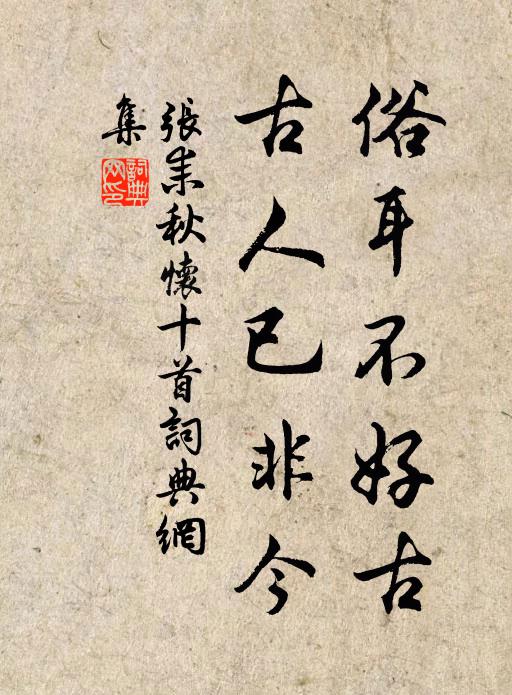 俗耳不好古
古人已非今
張耒秋懷十首詞典網
集
詞典
网印